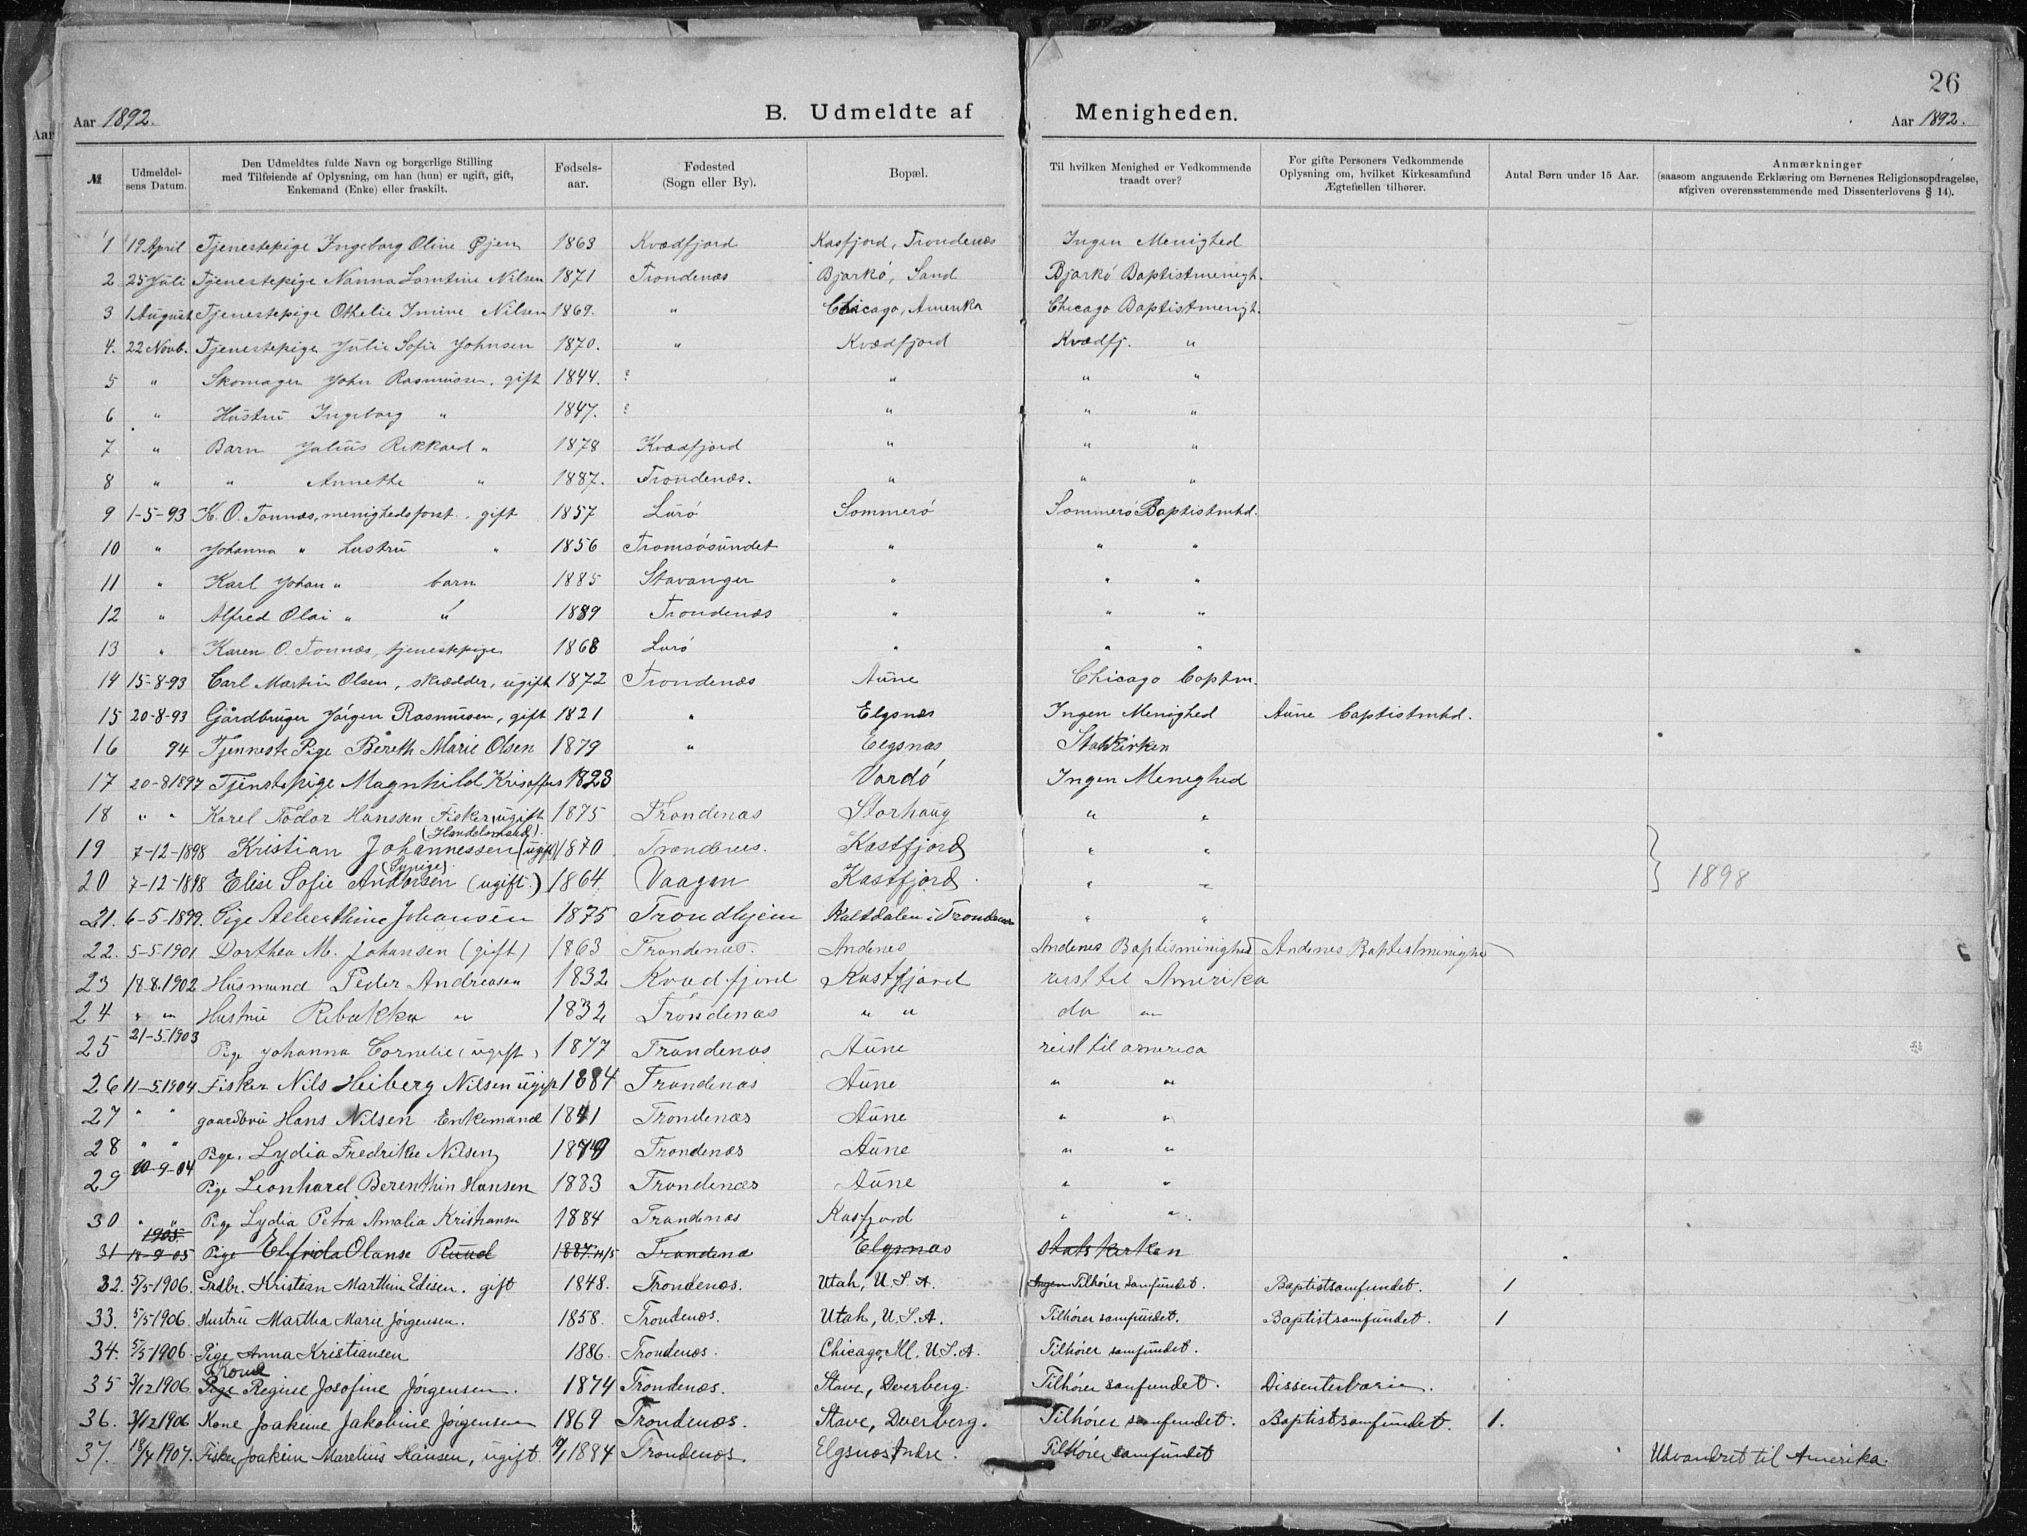 26
Aar 1892. B. Udmeldte af Menigheden. Aar 1892.
Aar
№ | Udmeldelsens Datum. | Den Udmeldtes fulde Navn og borgerlige Stilling med Tilføiende af Oplysning, om han (hun) er ugift, gift, Enkemand (Enke) eller fraskilt. | Fødselsaar. | Fødested (Sogn eller By). | Bopæl. | Til hvilken Menighed er Vedkommende traadt over? | For gifte Personers Vedkommende Oplysning om, hvilket Kirkesamfund Ægtefællen tilhører. | Antal Børn under 15 Aar. | Anmærkninger (saasom angaaende Erklæring om Børnenes Religionsopdragelse, afgiven overensstemmende med Dissenterlovens § 14).
1 19 April Tjenestepige Ingeborg Oline Øjen 1863 Kvædfjord Kasfjord, Trondenæs Ingen Menighed
2 25 Juli Tjenestepige Nanna Lorntine Nilsen 1871 Trondenæs Bjarkö, Sand Bjarkö Baptistmenigh.
3 1 August Tjenestepige Othelie Imine Nilsen 1869. " Chicago, Amerika Chicago Baptistmenigh.
4. 22 Novb. Tjenestepige Julie Sofie Johnsen 1870. " Kvædfjord Kvædfj. "
5 " Skomager John Rasmussen, gift 1844. ? " " "
6 " Hustru Ingeborg " 1847. ? " " "
7 " Barn Julius Rikkard " 1878 Kvædfjord " " "
8 " " Annette " 1887. Trondenæs. " " "
9 1-5-93 K. O. Tonnæs, menighedsforst., gift 1857 Lurö Sommerö Sommerö Baptistmhd.
10 " Johanna " hustru " 1856 Tromsösundet " " "
11 " Karl Johan " barn 1885 Stavanger " " "
12 " Alfred Olai " " 1889 Trondenæs " " "
13 " Karen O. Tonnæs, tjenestepige 1868 Lurö " " "
14 15-8-93 Carl Martin Olsen, skrædder, ugift 1872 Trondenæs Aune Chicago baptm.
15 20-8-93 Gårdbruger Jörgen Rasmussen, gift 1821 " Elgsnæs Ingen Menighed Aune baptistmhd.
16 94 Tjenneste Pige Bereth Marie Olsen 1879 " Elgsnæs Statskirken
17 20-8 1897 Tjenstepige Magnhild Kristoffers 1823 Vardö Ingen Menighed
18 " " Karel Todor Hanssen Fisker, ugift 1875 Trondenæs Storhaug " "
19 7-12-1898 Kristian Johannessen (Handelsmand). (ugift) 1870 Trondenes. Kastfjord " "
20 7-12-1898 Elise Sofie Andersen (Sypige). (ugift.) 1864. Vaagan Kastfjord. " " } 1898
21. 6-5-1899. Pige Alberthine Johansen 1875 Trondhjem Kaltdalen i Trondenæs " "
22. 5-5-1901. Dorthea M. Johansen (gift) 1863 Trondenæs. Andenes Andenes Baptisminighed Andenes Baptistminighed
23 18.8.1902 Husmand Peder Andreasen 1832 Kvædfjord Kastfjord reist til Amerika
24 " " Hustru Rebekka " 1832 Tröndenæs " " do "
25 21-5.1903 Pige Johanna Cornelie (ugift) 1877 Trondenæs Aune reist til america
26 11-5.1904 Fisker Nils Heiberg Nilsen ugift 1884 Trondenæs Aune " "
27 " " gaardbru Hans Nilsen Enkemand 1841 Trondenæs Aune " "
28 " " Pige. Lydia Fredrikke Nilsen 1879 Trondenæs Aune " "
29 10-9-04 Pige Leonhard Berenthin Hansen 1883 Trondenæs Aune " "
30 " " Pige Lydia Petra Amalia Kristiansen 1884 Trondenæs Kasfjord " "
1905.
31 18-9-05 Pige Elfrida Olanse Ruud 1887. 11/5 Trondenæ Elgsnæs statskirken
32. 5/5 1906. Grdbr. Kristian Marthin Edisen. gift 1848. Trondenæs. Utah, U.S.A. Ingen Tilhører samfundet. Baptistsamfundet. 1
33. 5/5 1906. Hustru Martha Marie Jörgensen. 1858. Trondenæs. Utah, U.S.A. Tilhører samfundet. Baptistsamfundet. 1
34. 5/5 1906 Pige Anna Kristiansen 1886. Trondenæs. Chicago, Ill. U.S.A. Tilhører samfundet.
35 3/12 1906. Pige Kone Regine Josofine Jörgensen. 1874 Trondenæs. Stave, Dverberg. Tilhører samfundet. Dissenter
36. 3/12 1906 Kone Joakine Jakobine Jörgensen 1869 Trondenæs. Stave, Dverberg. Tilhører samfundet. Baptistsamfundet. 1.
37. 18/4 1907. Fisker Joakim Marelius Hansen, ugift 9/1 1884 Trondenæs. Elgsnes Indre. Tilhører samfundet Udvandret til Amerika.